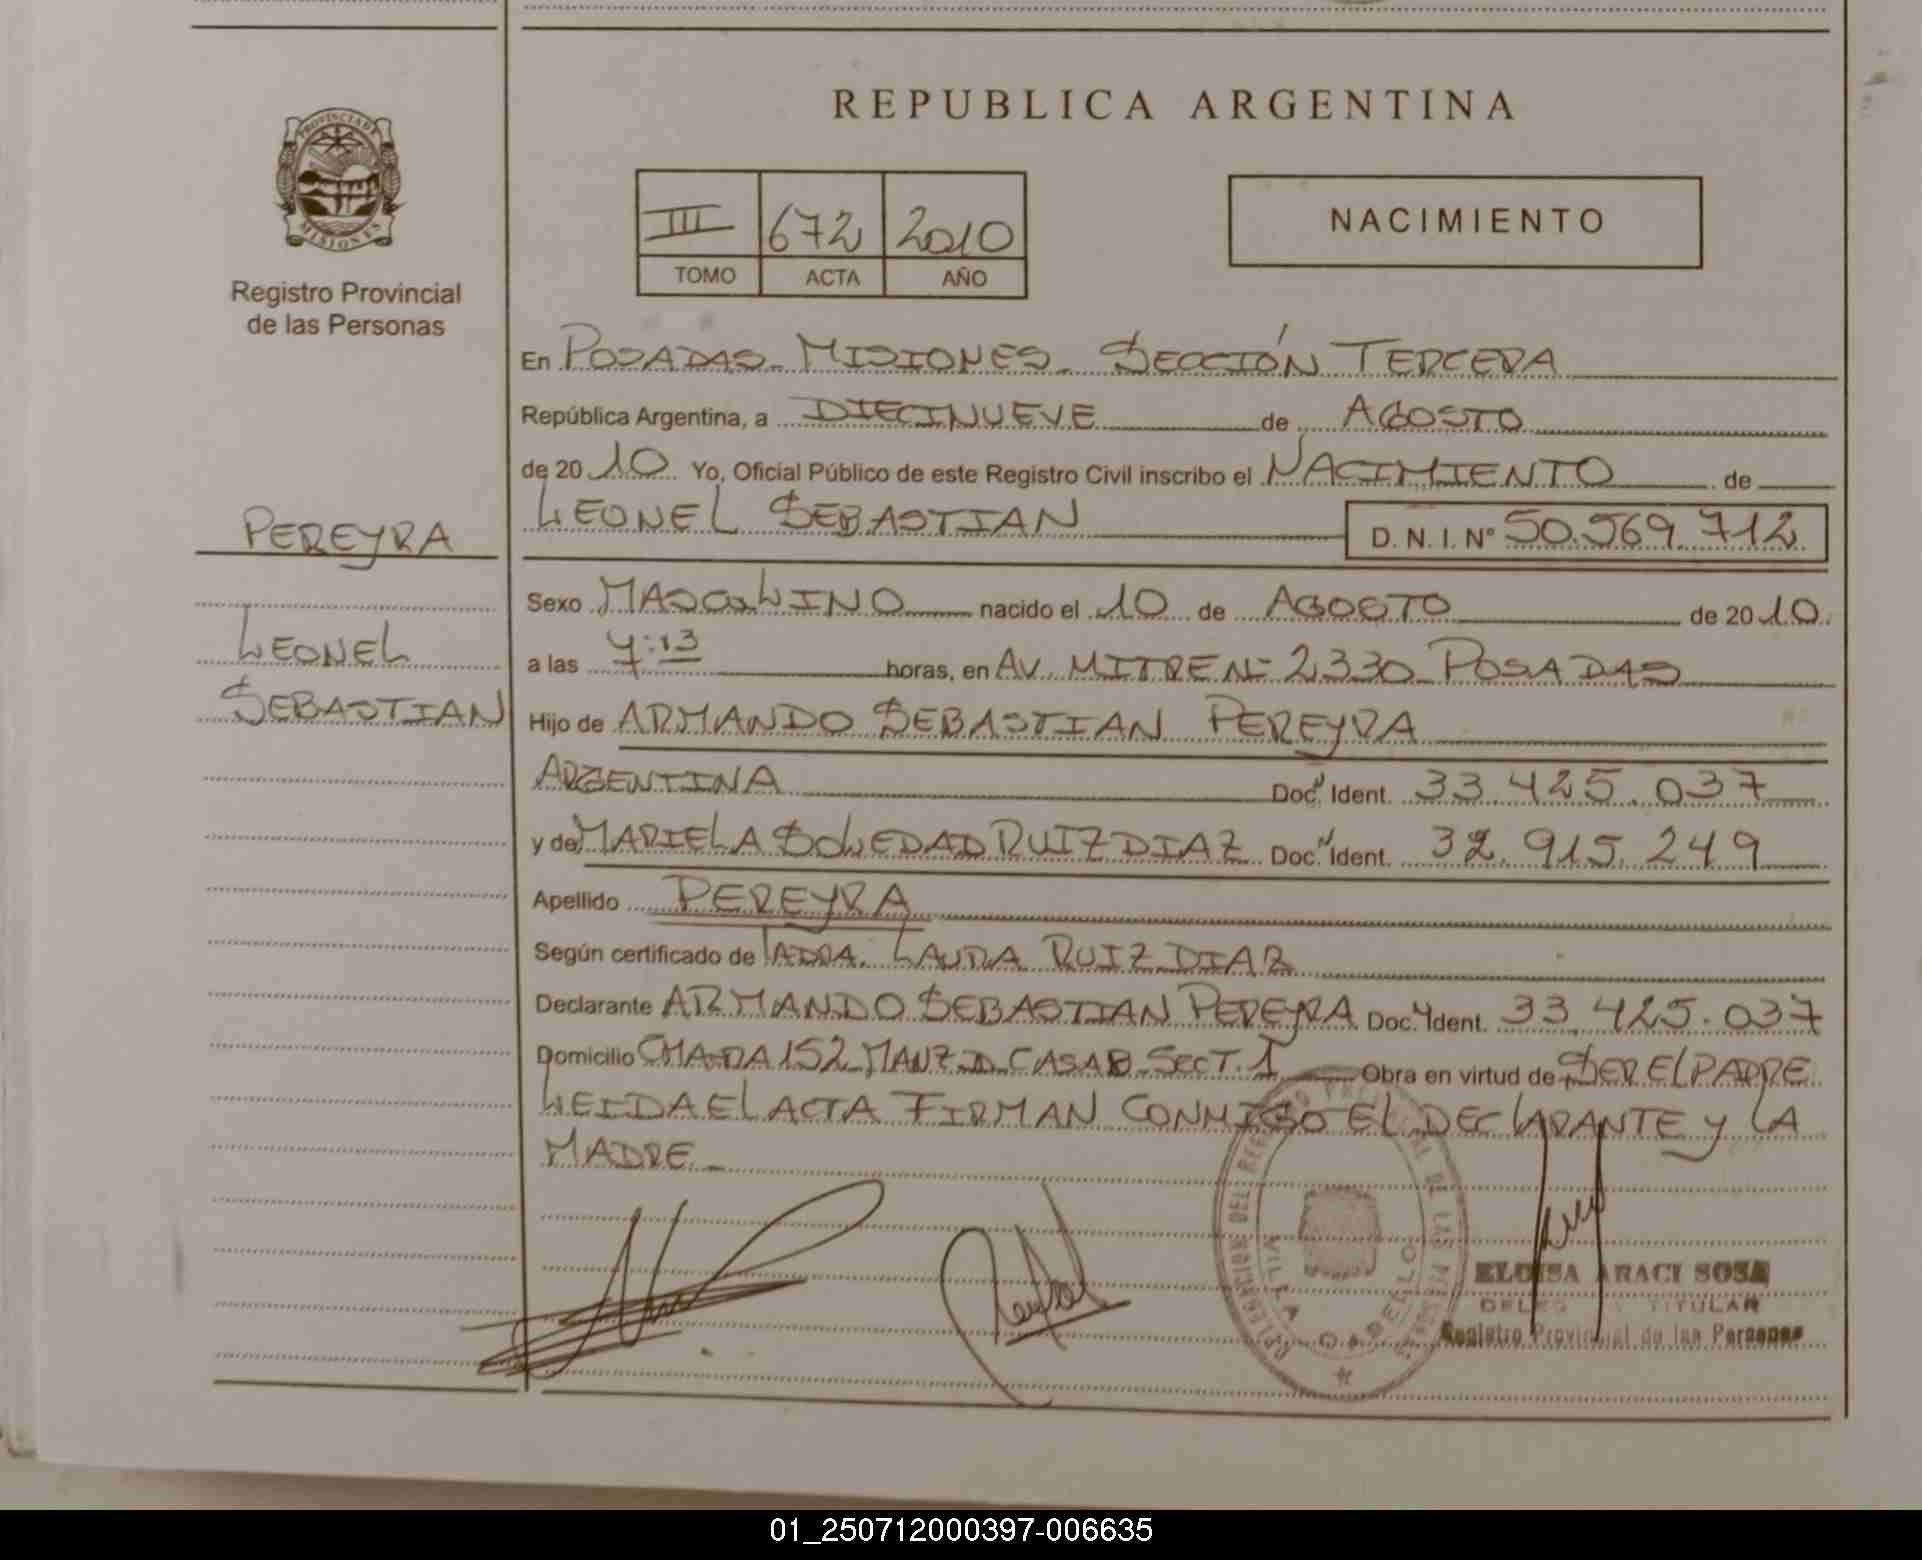 REPUBLICA ARGENTINA
PROVINCIA DE
MISIONES
Registro Provincial
de las Personas
III 672 2010
TOMO ACTA AÑO
NACIMIENTO
En POSADAS - MISIONES - SECCIÓN TERCERA
República Argentina, a DIECINUEVE de AGOSTO
de 20 10 Yo, Oficial Público de este Registro Civil inscribo el NACIMIENTO de
LEONEL SEBASTIAN D. N. I. Nº 50.569.712
PEREYRA
LEONEL
SEBASTIAN
Sexo MASCULINO nacido el 10 de AGOSTO de 20 10
a las 4:13 horas, en AV. MITRE Nº 2330 - POSADAS
Hijo de ARMANDO SEBASTIAN PEREYRA
ARGENTINA Doc. Ident. 33.425.037
y de MARIELA SOLEDAD RUIZ DIAZ Doc. Ident. 32.915.249
Apellido PEREYRA
Según certificado de LA DRA. LAURA RUIZ DIAZ
Declarante ARMANDO SEBASTIAN PEREYRA Doc. Ident. 33.425.037
Domicilio CHACRA 152 MANZ D CASA 8 SECT. 1 Obra en virtud de SER EL PADRE
LEIDA EL ACTA FIRMAN CONMIGO EL DECLARANTE Y LA
MADRE -
VILLA CABELLO
ELOISA ARACI SOSA
TITULAR
Registro Provincial de las Personas
01_250712000397-006635